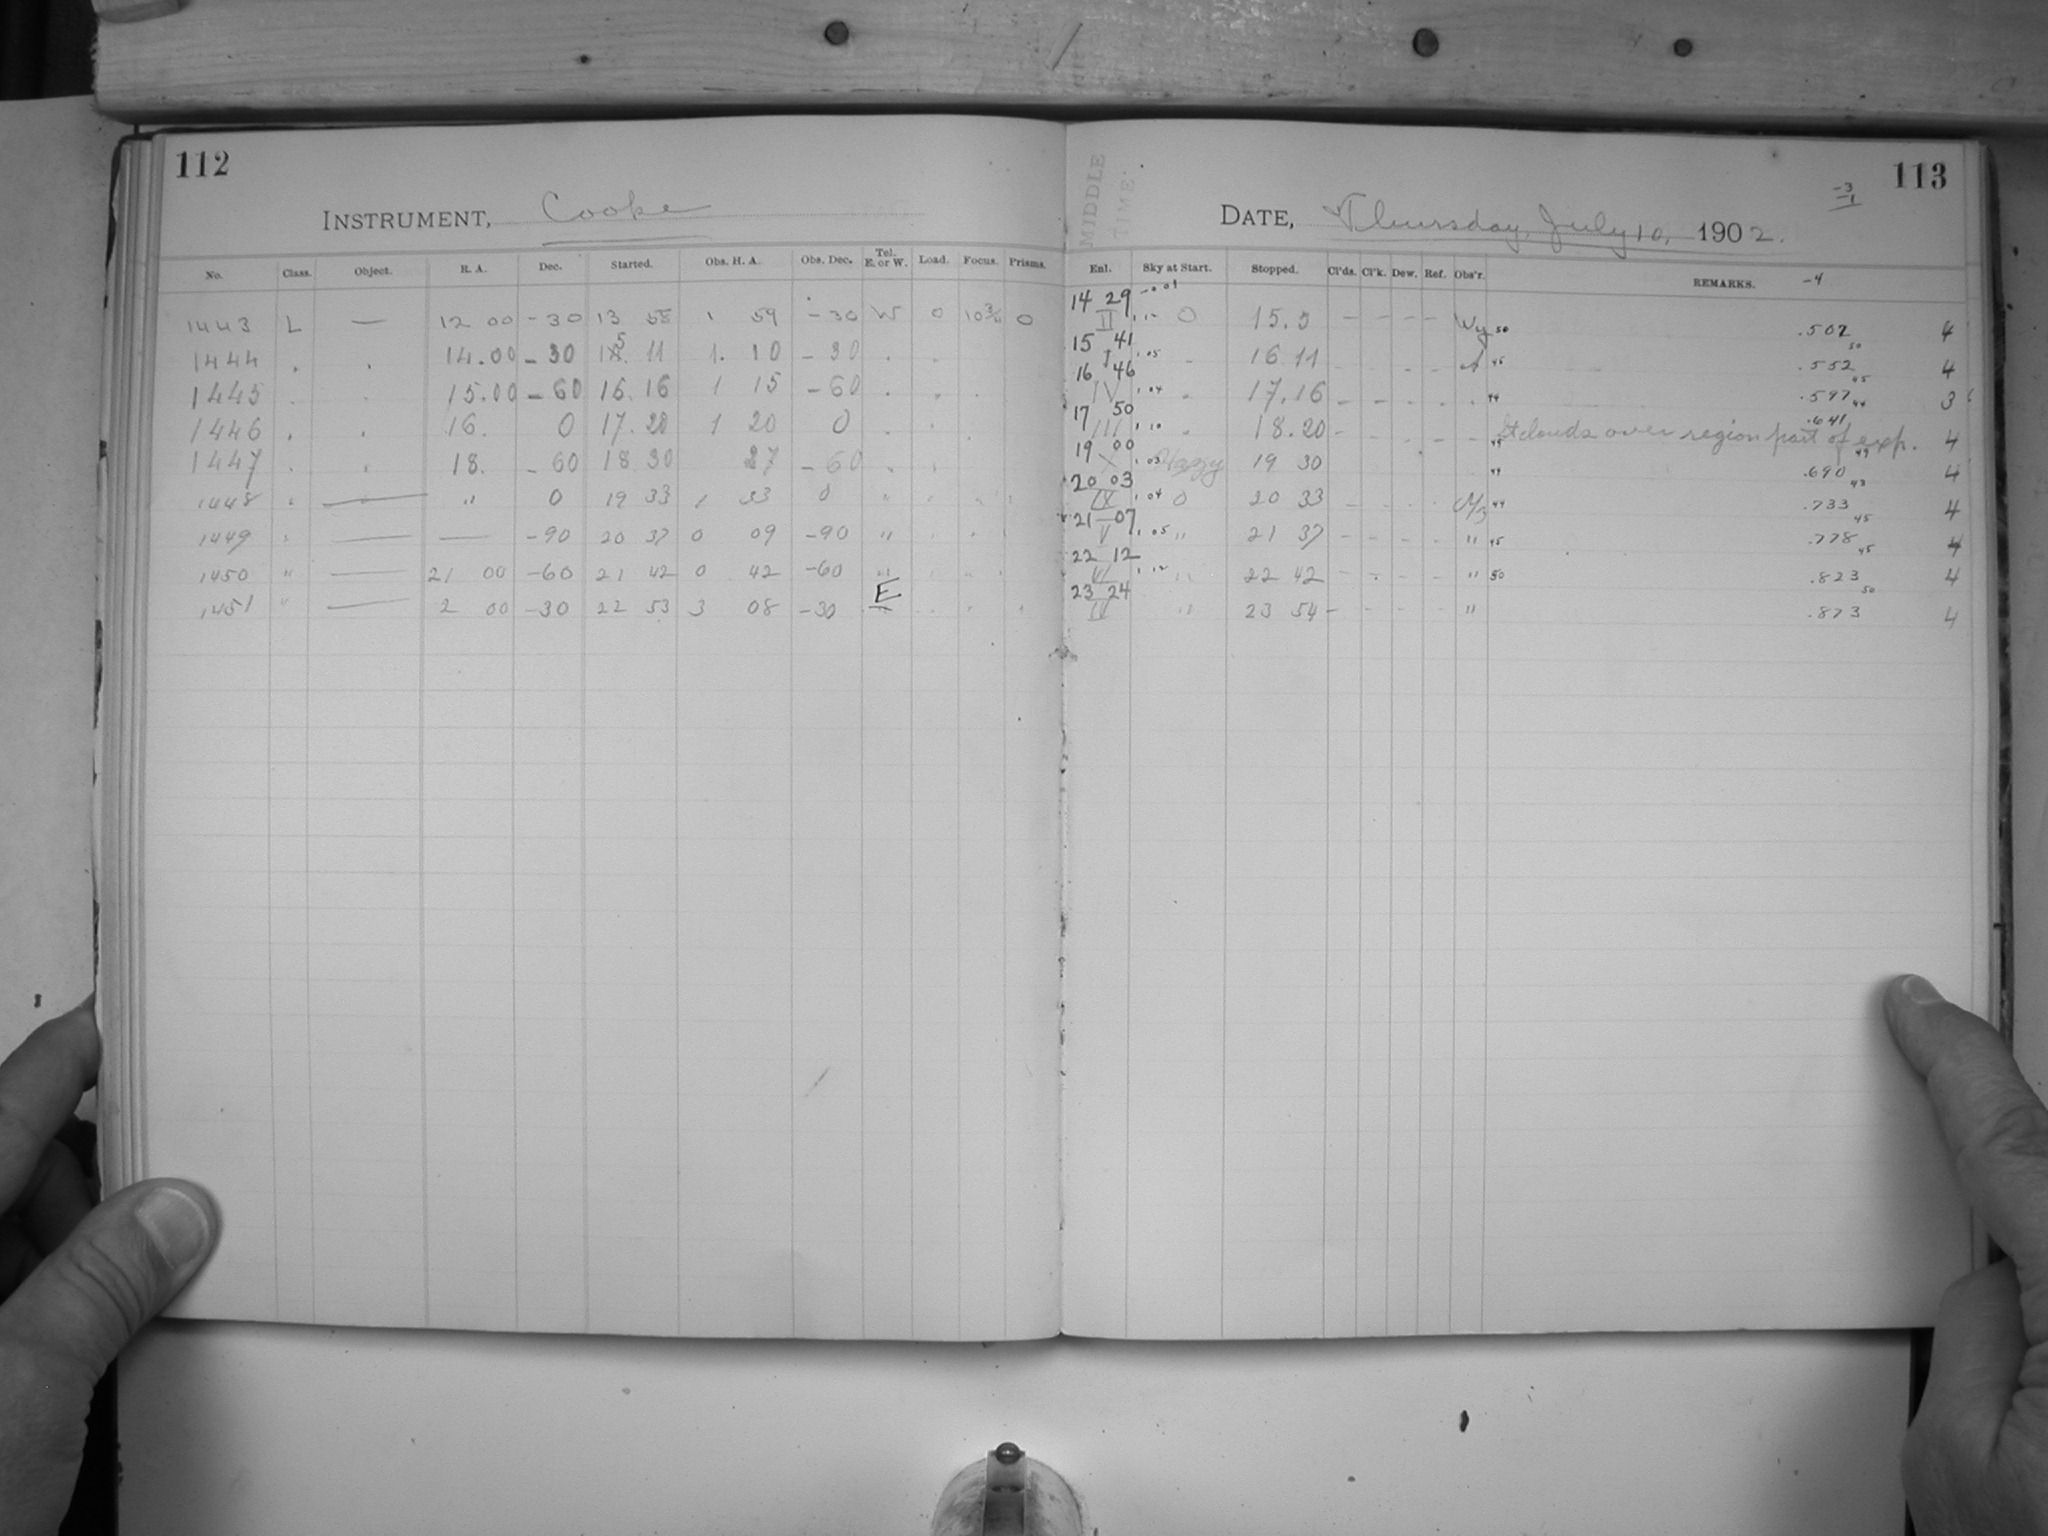 112
INSTRUMENT, Cooke
No. Class. Object. R. A. Dec. Started. Obs. H. A. Obs. Dec. Tel. E. or W. Load. Focus. Prisms.
1443 L — 12 00 -30 13 58 1 59 -30 W 0 10 3/4 0
1444 . . 14.00 -30 15. 11 1. 10 -30 . . .
1445 . . 15.00 -60 16. 16 1 15 -60 . . .
1446 . . 16. 0 17. 20 1 20 0 . . .
1447 . . 18. -60 18 30 27 -60 . .
1448 " — " 0 19 33 1 33 0 " " " "
1449 " — — -90 20 37 0 09 -90 " " "
1450 " — 21 00 -60 21 42 0 42 -60 " " "
1451 " — 2 00 -30 22 53 3 08 -30 E " " "
113
MIDDLE TIME.
-3
-1
DATE, Thursday, July 10, 1902.
Enl. Sky at Start. Stopped. Cl'ds. Cl'k. Dew. Ref. Obs'r. REMARKS. -4
14 29 II 1 12 0 15.5 — — — — Wy 50 .502 4
15 41 I 1 05 16 11 A 45 50 .552 4
16 46 IV 1 04 17.16 — — — — 44 45 .597 3
17 50 III 1 10 18.20 — — — 49 44 .641 Lt clouds over region part of exp. 4
19 00 X 1 03 Hazy 19 30 44 49 .690 4
20 03 IX 1 04 0 20 33 44 43 .733 4
21 07 V 1 05 " 21 37 — — — — " 45 45 .778 4
22 12 VI 1 12 " 22 42 — — — — " 50 45 .823 4
23 24 IV " 23 54 — — — — " 50 .873 4